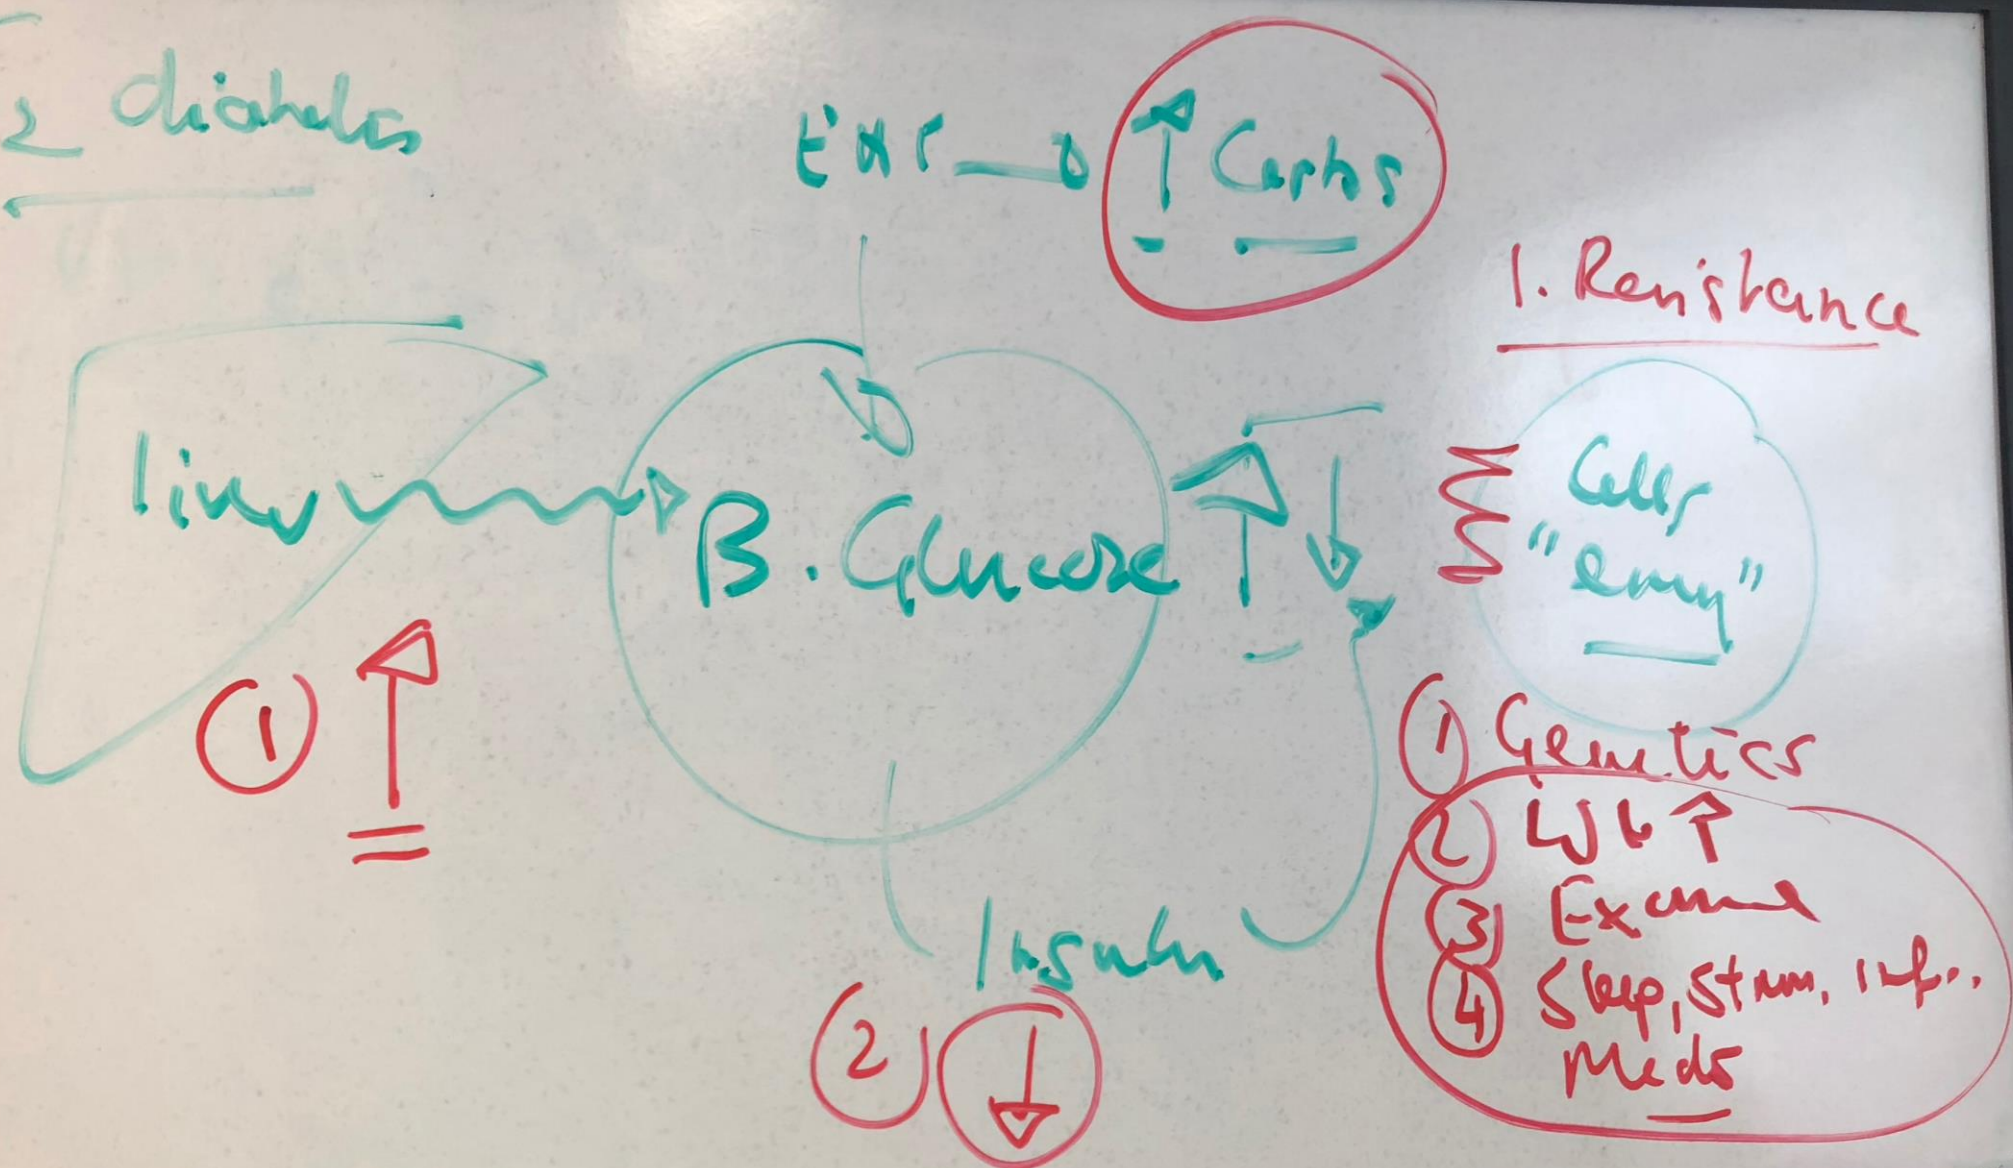 2 diabetes
Carbs
1. Resistance
liver
B. Glucose
Cells
"
"
① Genetics
② Wt ↑
③ Exercise
④ Sleep, Stress, inf..
Meds
Insulin
①
②